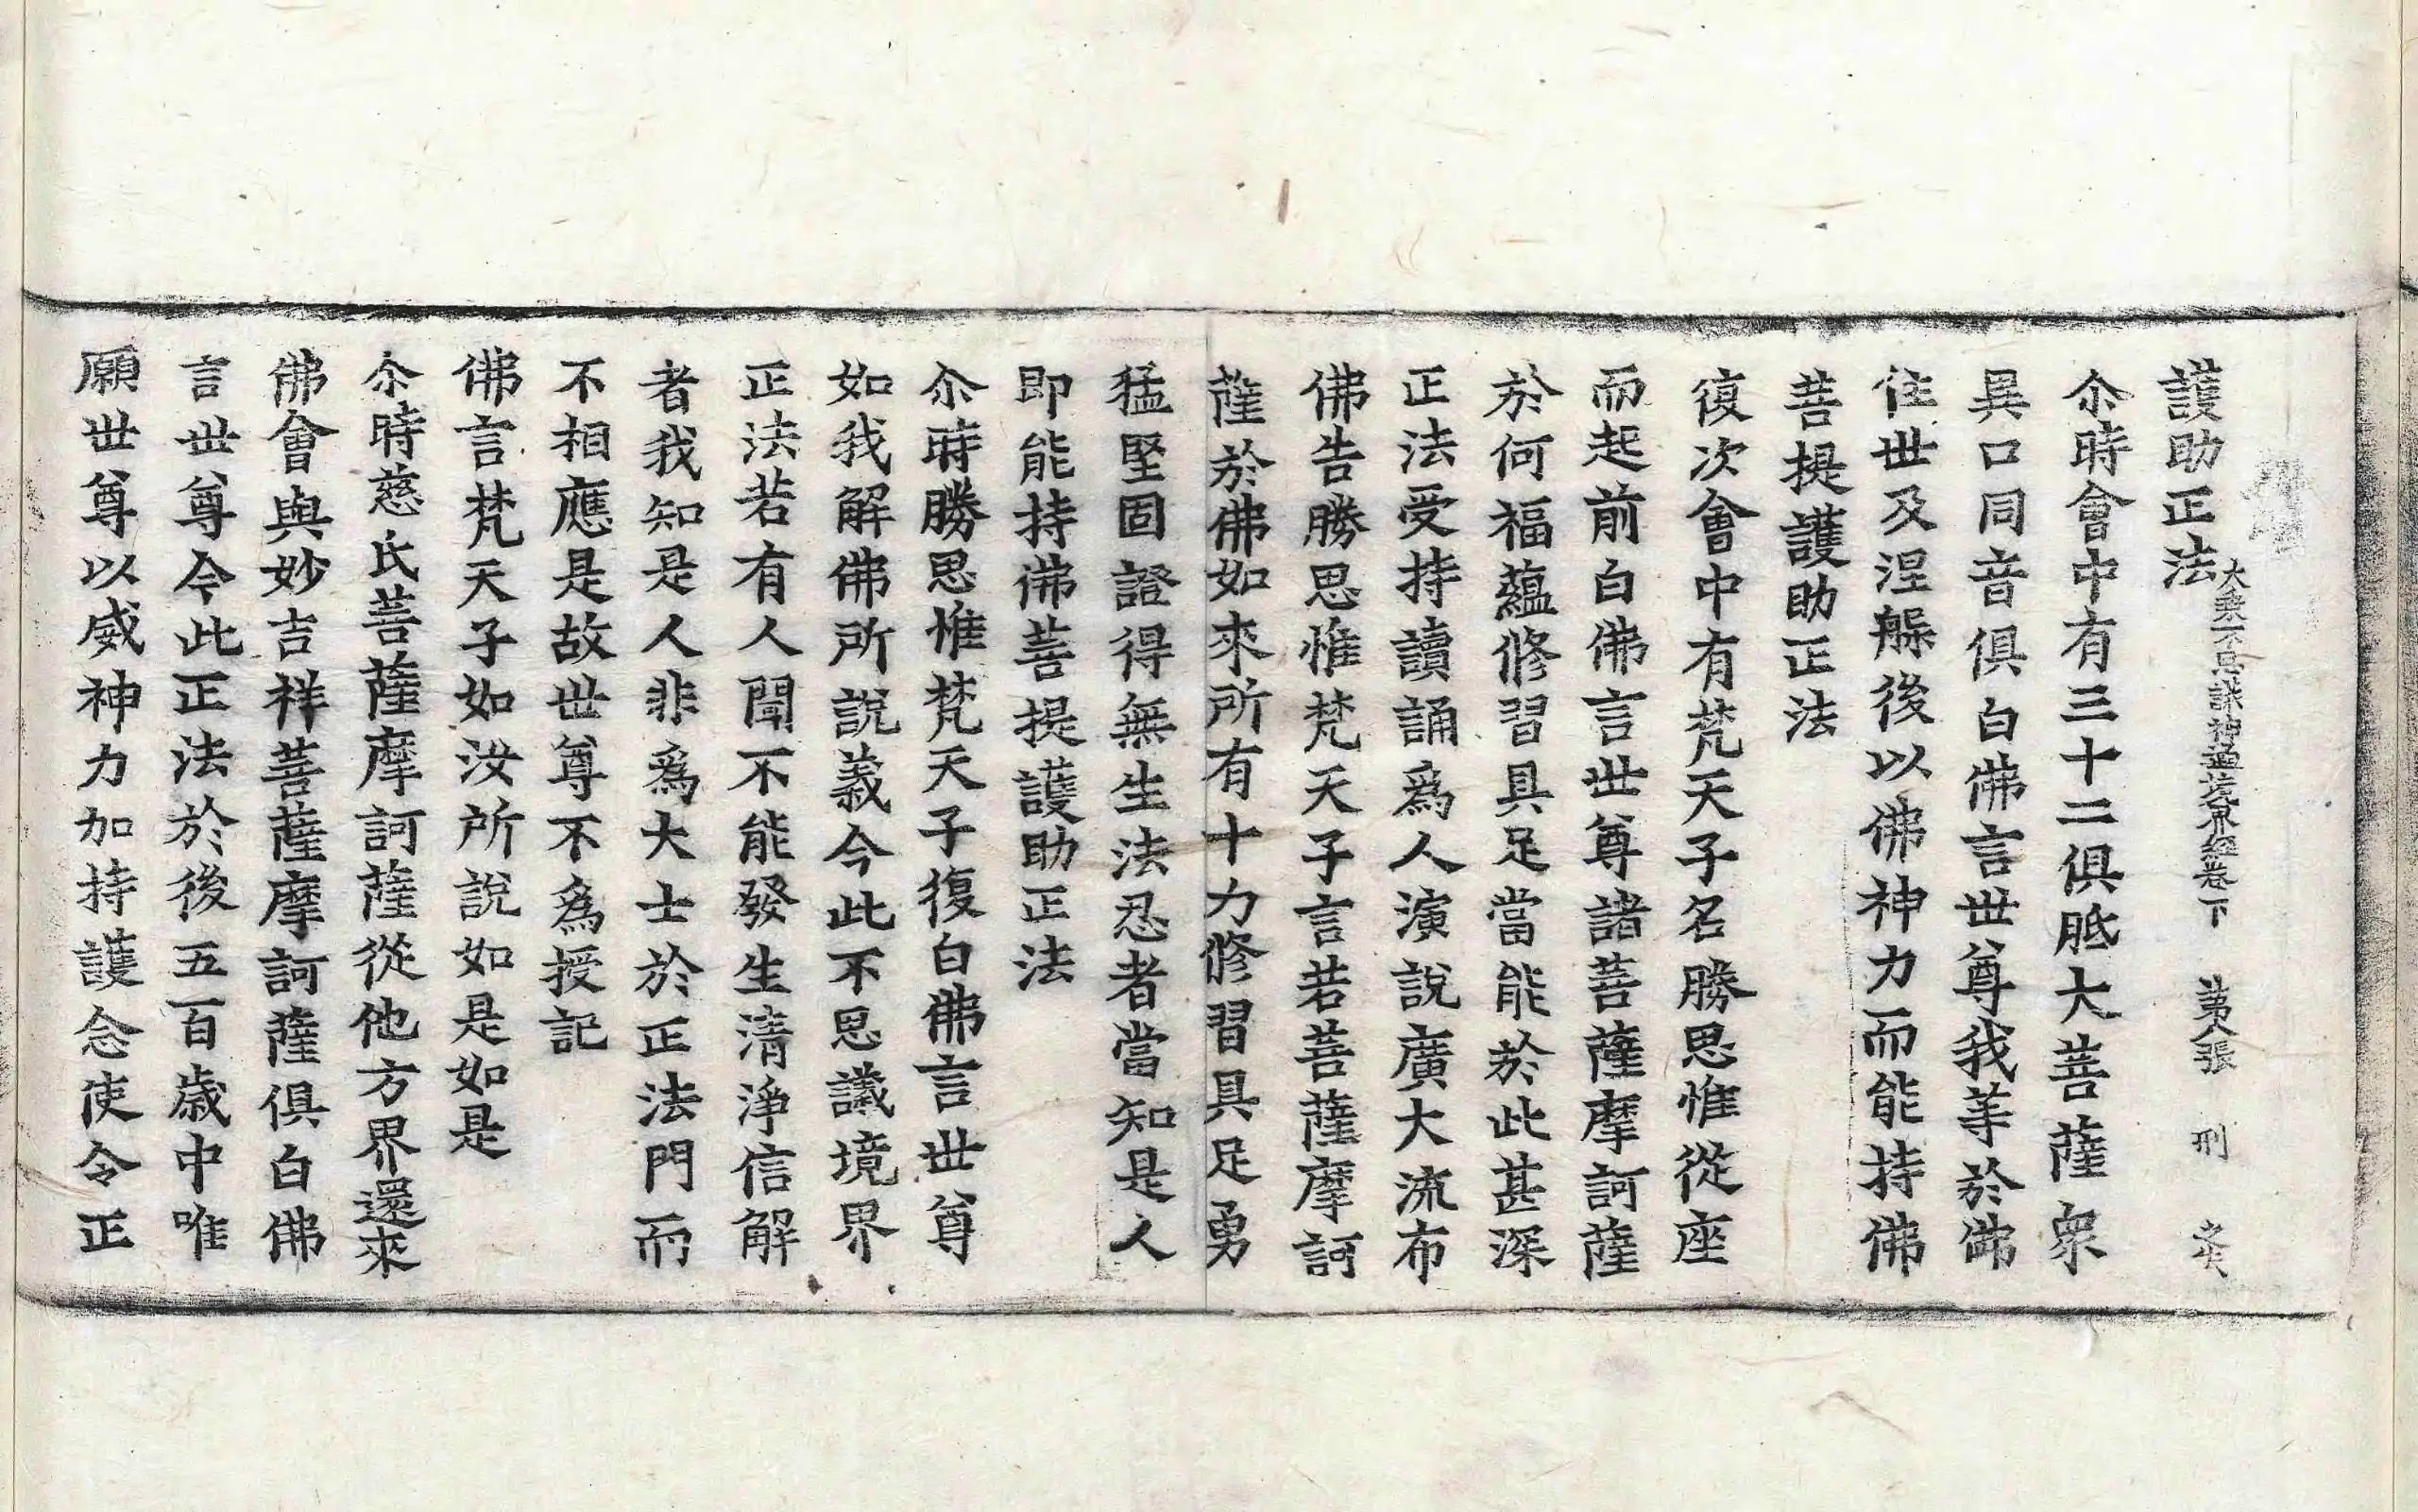 護助正法
大乘不思議神通境界經卷下 苐八張 刑
尒時會中有三十二俱胝大菩薩衆
異口同音俱白佛言世尊我等於佛
住世及涅槃後以佛神力而能持佛
菩提護助正法
復次會中有梵天子名勝思惟從座
而起前白佛言世尊諸菩薩摩訶薩
於何福蘊修習具足當能於此甚深
正法受持讀誦爲人演說廣大流布
佛告勝思惟梵天子言若菩薩摩訶
薩於佛如來所有十力修習具足勇
猛堅固證得無生法忍者當知是人
即能持佛菩提護助正法
尒時勝思惟梵天子復白佛言世尊
如我解佛所說義今此不思議境界
正法若有人聞不能發生清淨信解
者我知是人非爲大士於正法門而
不相應是故世尊不爲授記
佛言梵天子如汝所說如是如是
尒時慈氏菩薩摩訶薩從他方界還來
佛會與妙吉祥菩薩摩訶薩俱白佛
言世尊今此正法於後五百歲中唯
願世尊以威神力加持護念使令正